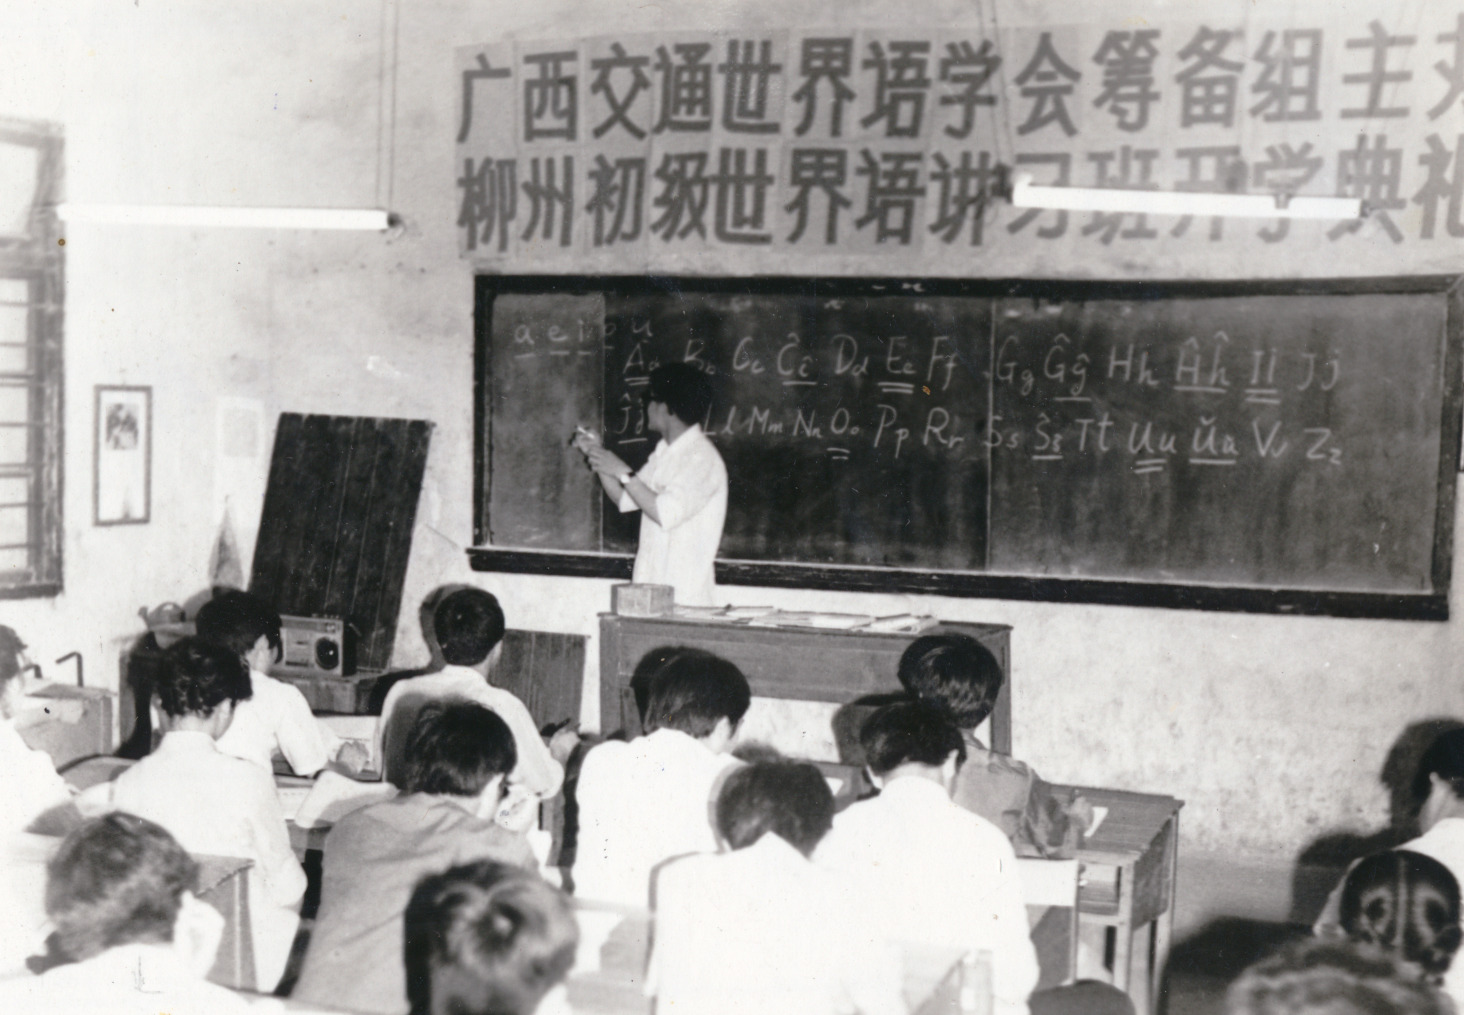 广西交通世界语学会筹备组主办
柳州初级世界语讲习班开学典礼
a e i o u
Aa Bb Cc Ĉĉ Dd Ee Ff Gg Ĝĝ Hh Ĥĥ Ii Jj
Ĵĵ Ll Mm Nn Oo Pp Rr Ss Ŝŝ Tt Uu Ŭŭ Vv Zz